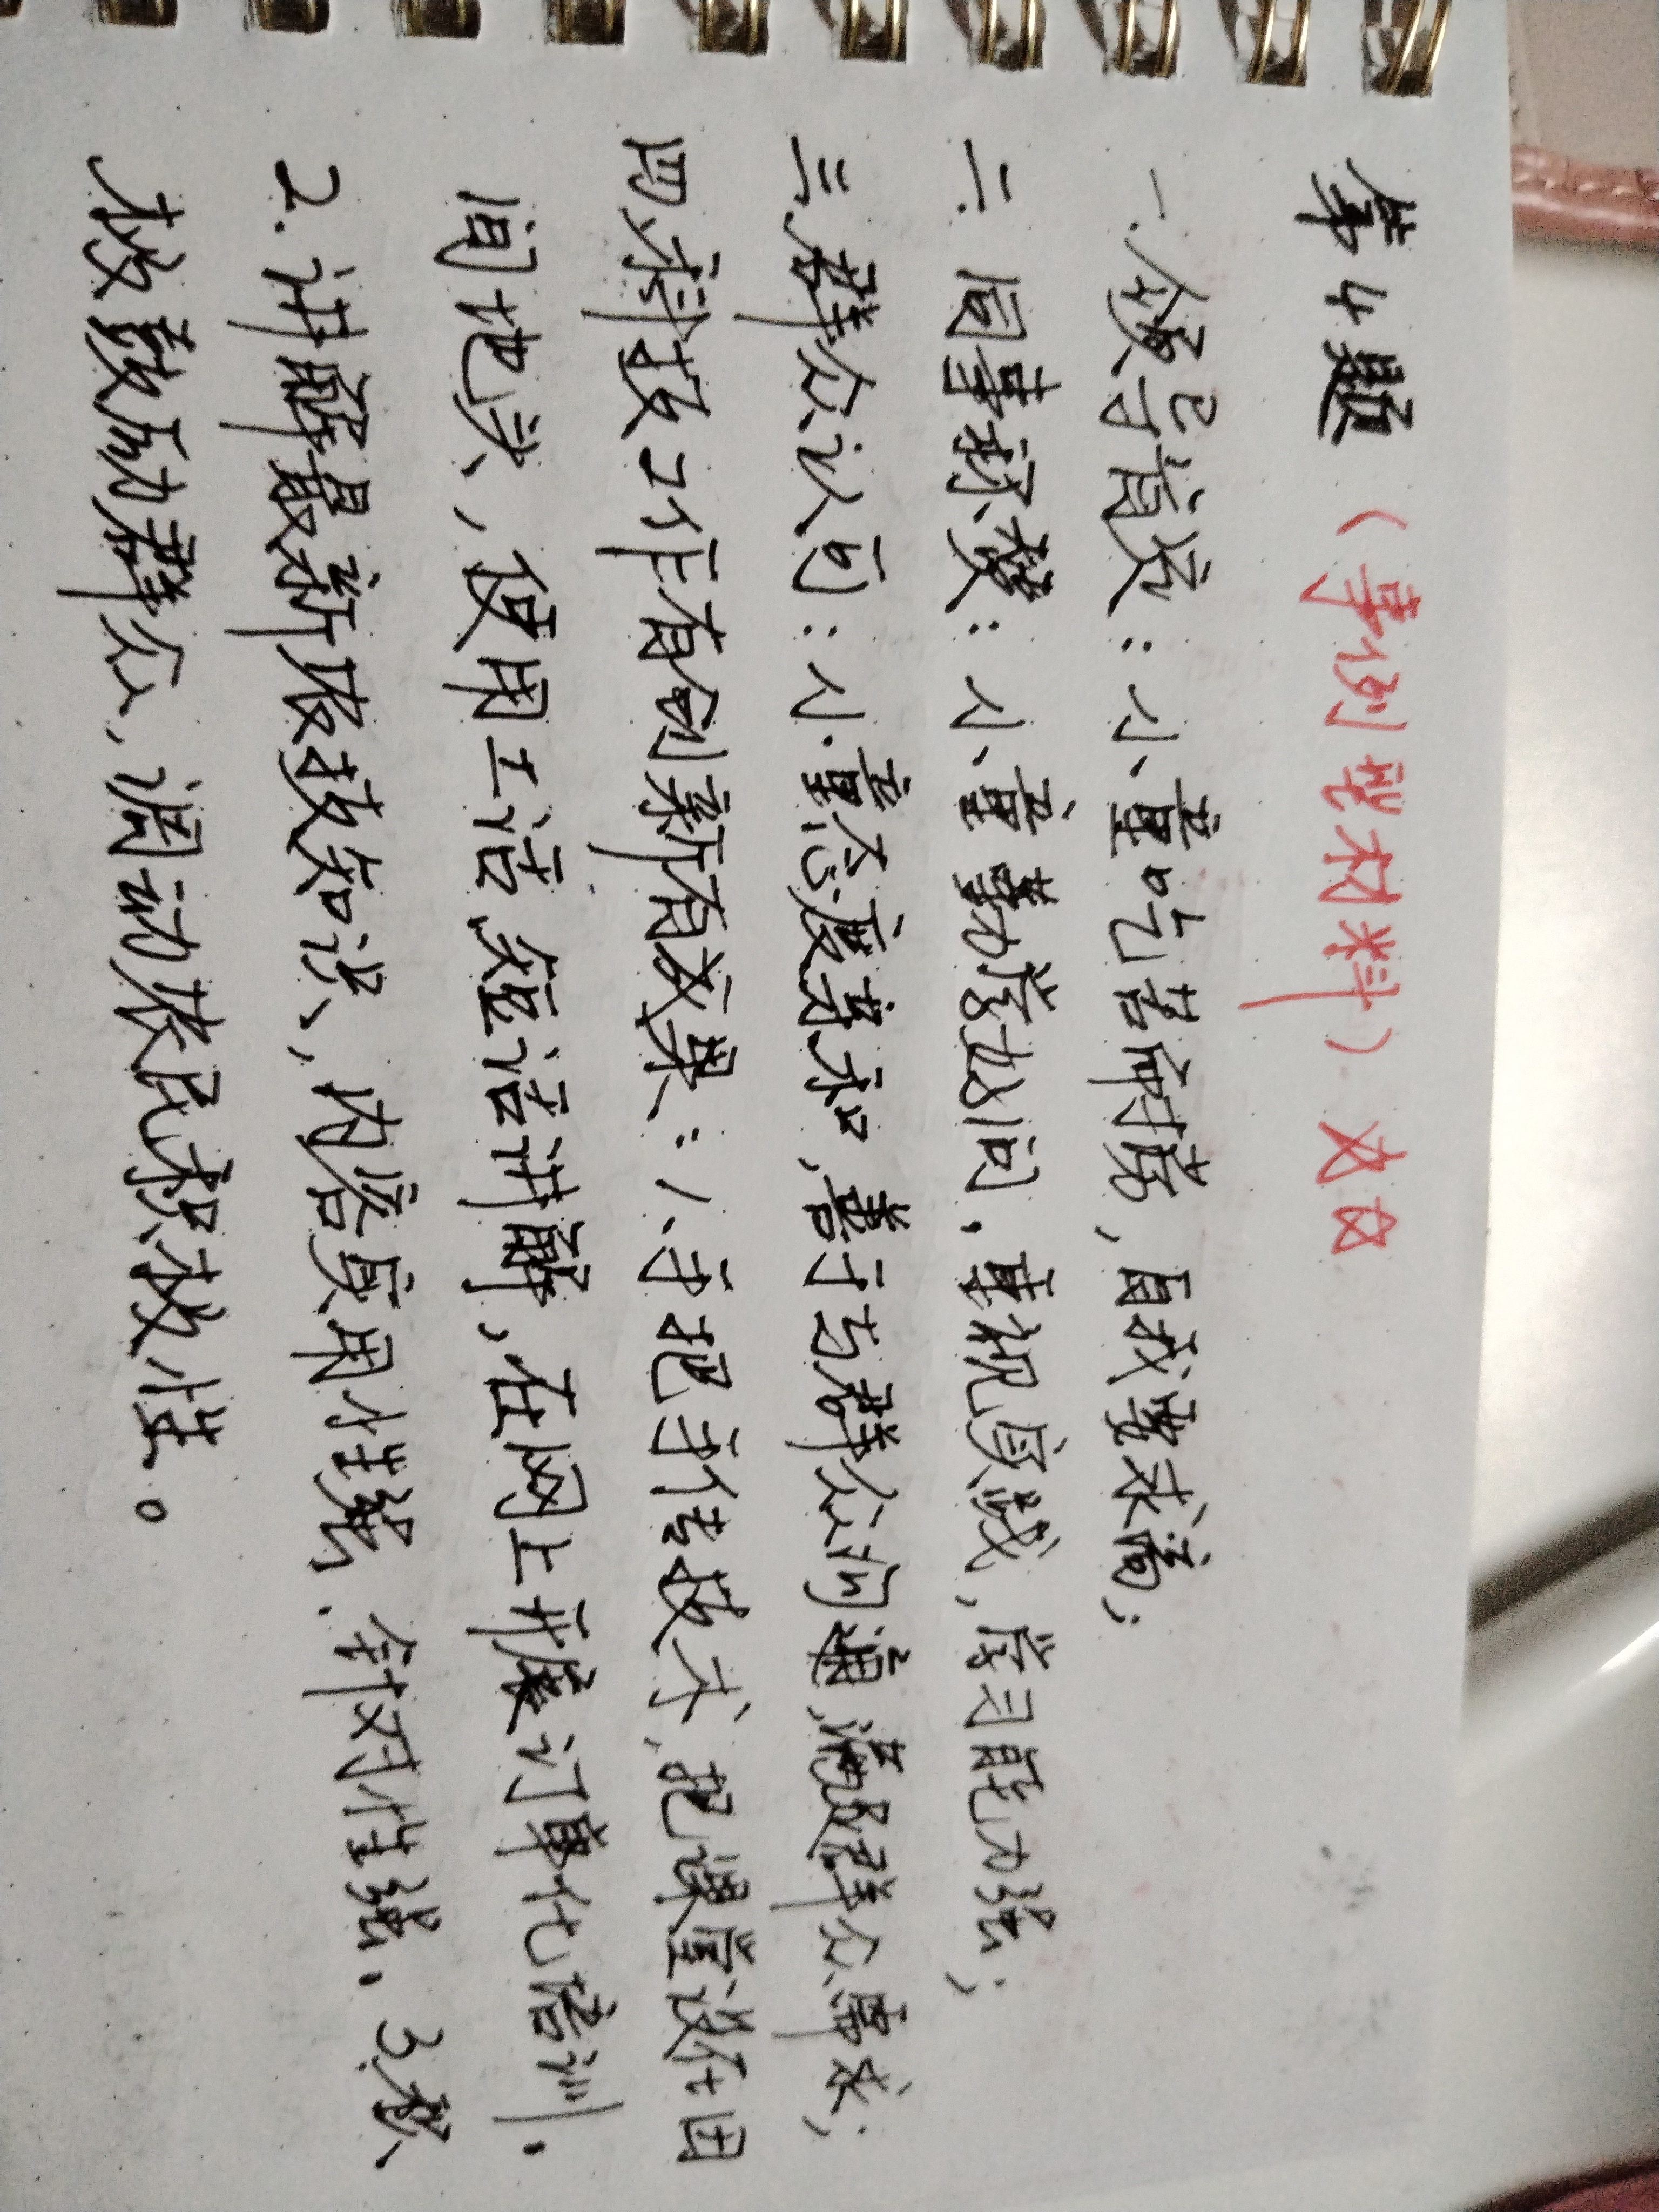 第4题（事例型材料）
一、领导肯定：小童吃苦耐劳，自我要求高；
二、同事称赞：小童勤学好问，重视实践，学习能力强；
三、群众认可：小童态度亲和，善于与群众沟通，满足群众需求；
四、科技工作有创新有效果：1、手把手传技术，把课堂设在田
间地头，使用土话、短语讲解，在网上开展订单化培训。
2.讲解最新农技知识，内容实用性强、针对性强。3.积
极鼓励群众，调动农民积极性。